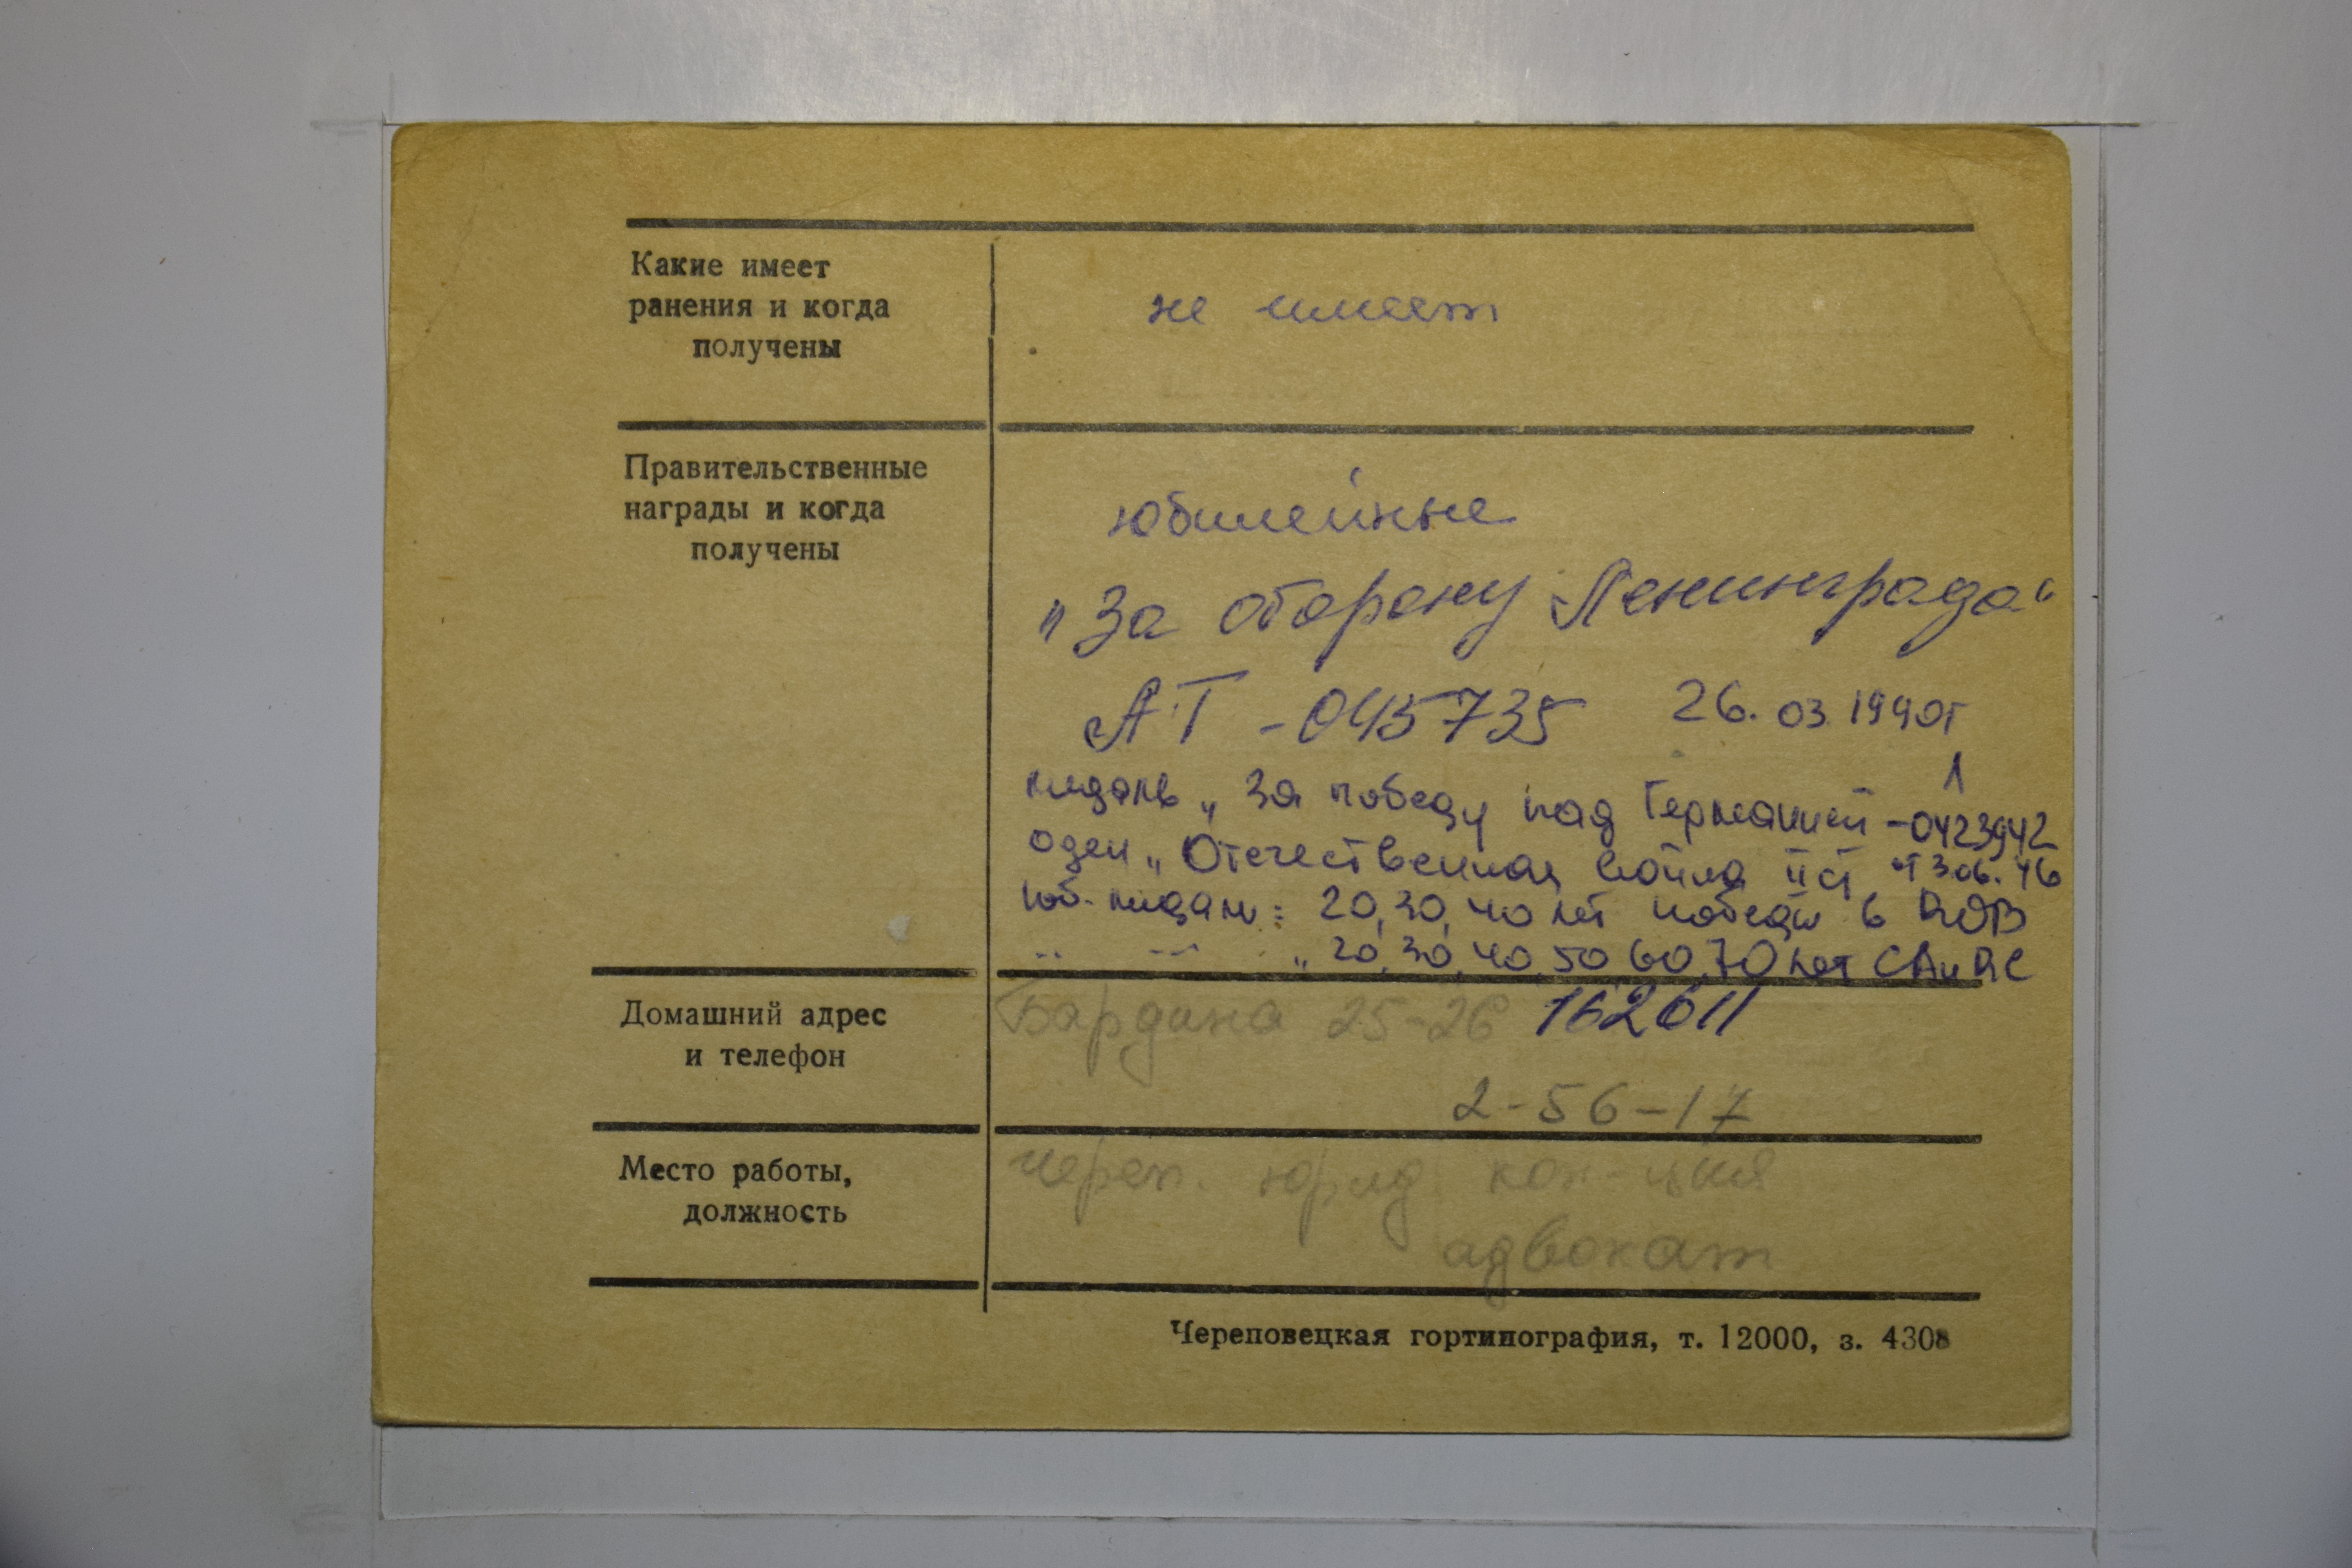 Какие имеет
ранения и когда
получены
не имеет
Правительственные
награды и когда
получены
юбилейные
"За оборону Ленинграда"
АТ - 045735 26.03 1990г
медаль „За победу над Германией - 0423942
оден „Отечественная война II ст от 3.06.46
юб. медали: 20, 30, 40 лет победы в ВОВ
„ — „ 20, 30, 40, 50, 60, 70 лет СА и ВС
Домашний адрес
и телефон
Бардина 25-26 162611
2-56-17
Место работы,
должность
Череп. юрид кон-ция
адвокат
Череповецкая гортипография, т. 12000, з. 4308